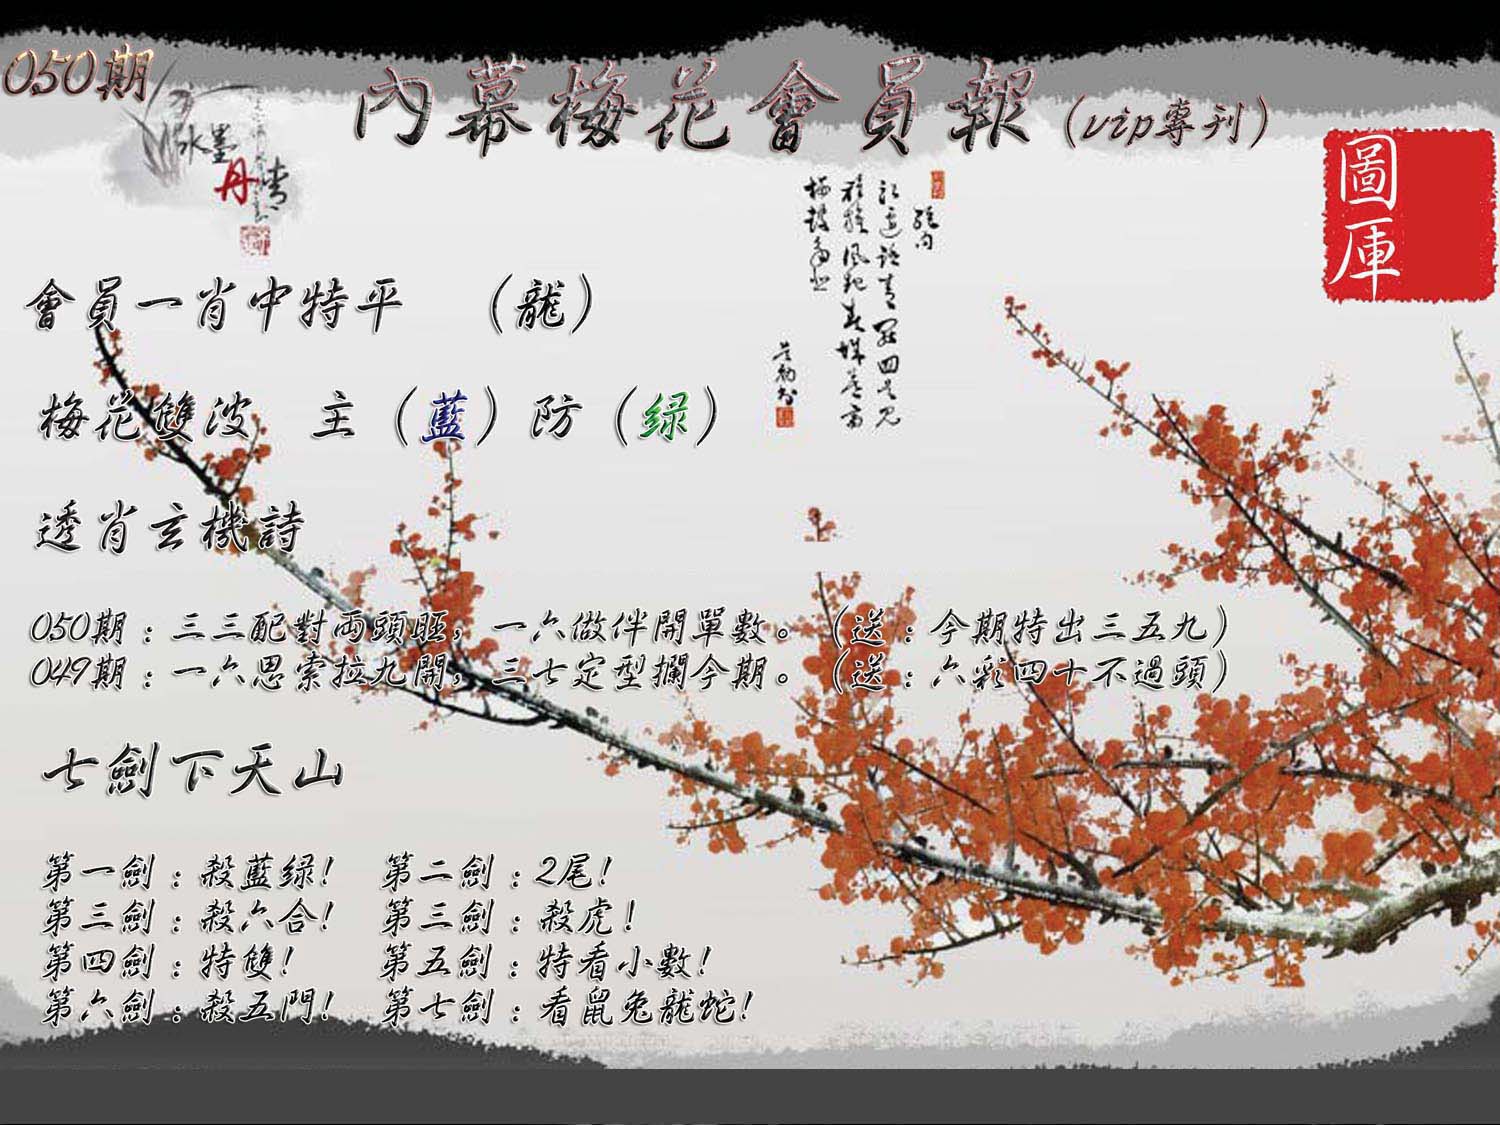 050期
內幕梅花會員報（vip專刊）
水墨
丹青
圖庫
會員一肖中特平　（龍）
梅花雙波　主（藍）防（绿）
透肖玄機詩
050期：三三配對両頭旺，一六做伴開單數。（送：今期特出三五九）
049期：一六思索拉九開，三七定型攔今期。（送：六彩四十不過頭）
七劍下天山
第一劍：殺藍绿！　第二劍：2尾！
第三劍：殺六合！　第三劍：殺虎！
第四劍：特雙！　第五劍：特看小數！
第六劍：殺五門！　第七劍：看鼠兔龍蛇！